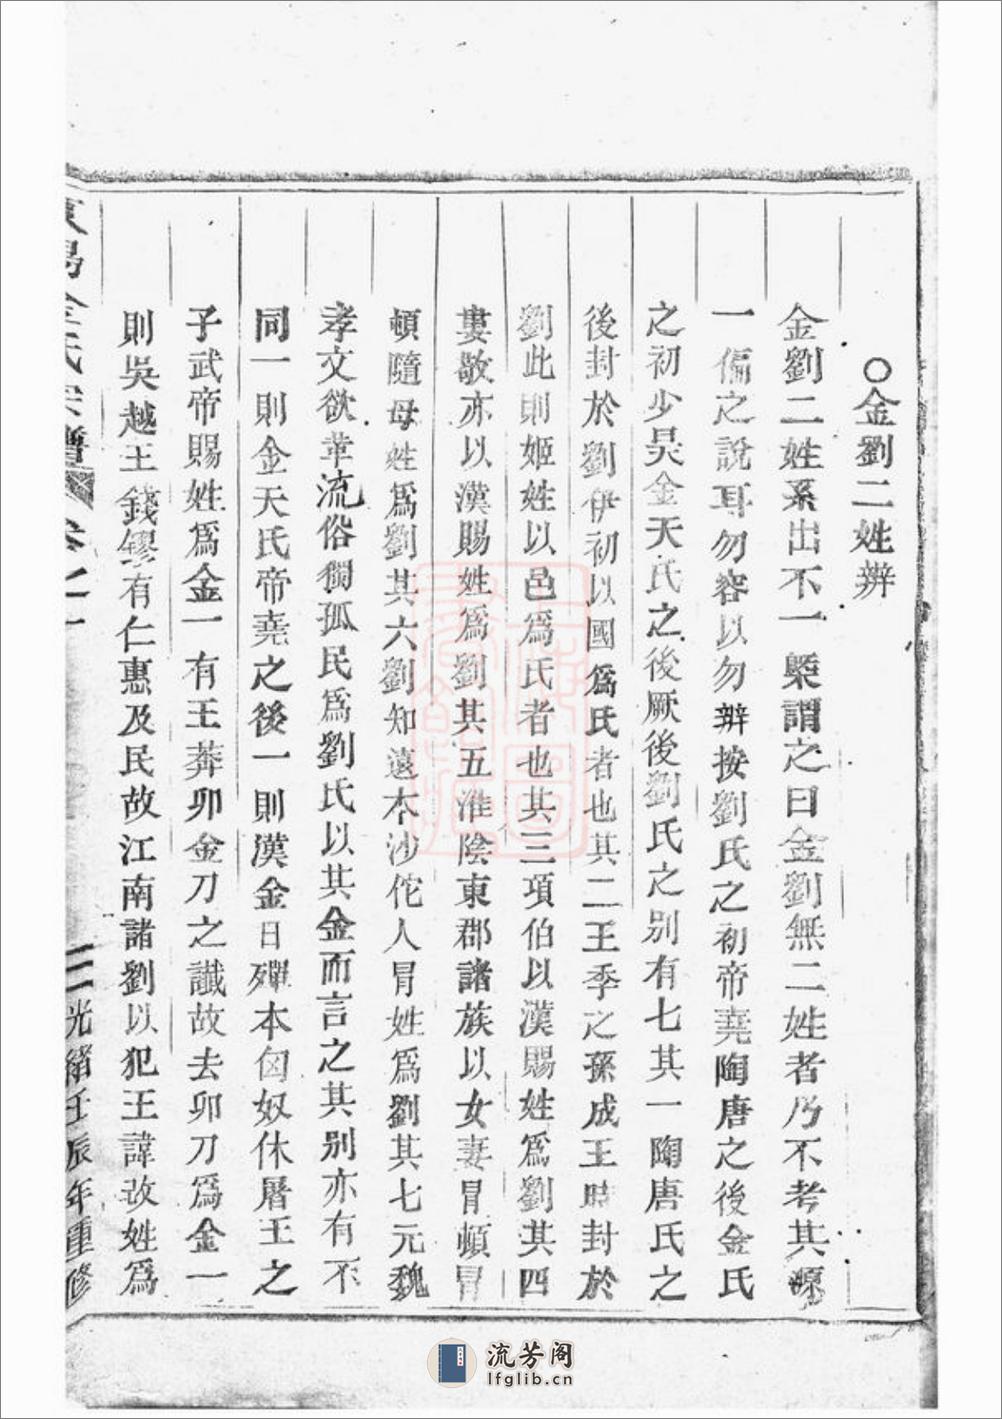 ○金劉二姓辨
金劉二姓系出不一槩謂之曰金劉無二姓者乃不考其源
一偏之說耳勿容以勿辨按劉氏之初帝堯陶唐之後金氏
之初少昊金天氏之後厥後劉氏之別有七其一陶唐氏之
後封於劉伊初以國爲氏者也其二王季之孫成王時封於
劉此則姬姓以邑爲氏者也其三項伯以漢賜姓爲劉其四
婁敬亦以漢賜姓爲劉其五淮陰東郡諸族以女妻冒頓冒
頓隨母姓爲劉其六劉知遠本沙佗人冒姓爲劉其七元魏
孝文欲革流俗獨孤民爲劉氏以其金而言之其別亦有不
同一則金天氏帝堯之後一則漢金日殫本匈奴休屠王之
子武帝賜姓爲金一有王莽卯金刀之讖故去卯刀爲金一
則吳越王錢鏐有仁惠及民故江南諸劉以犯王諱改姓爲
東陽金氏宗譜 卷之一 三 光緒壬辰年重修
流芳阁
lfglib.cn